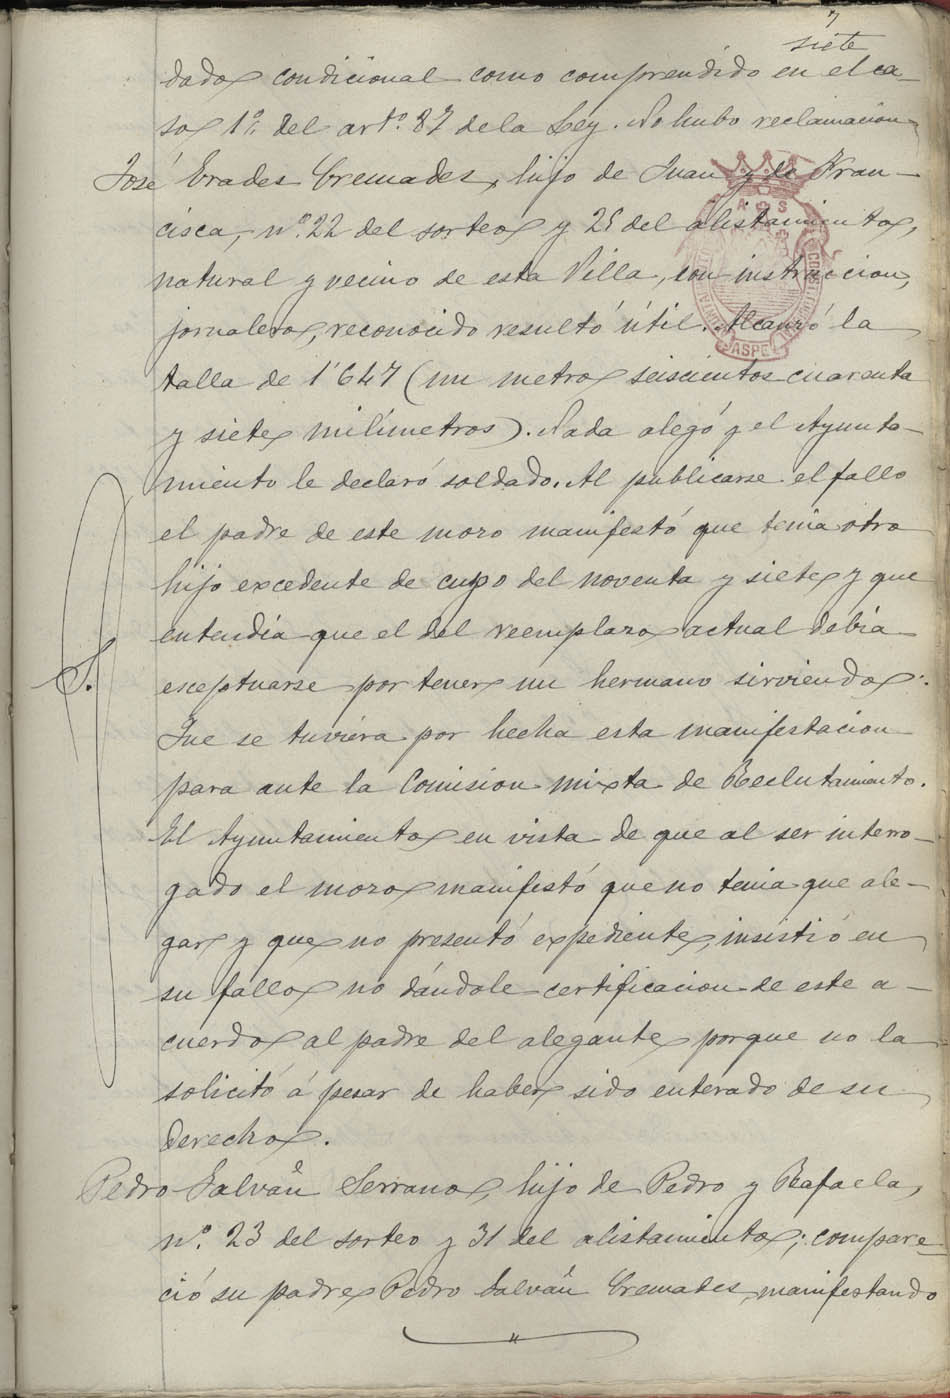 7
siete
dado condicional como comprendido en el ca-
so 1º del artº. 87 de la Ley. No hubo reclamacion
José Erades Cremades, hijo de Juan y de Fran-
cisca, nº. 22 del sorteo y 25 del alistamiento,
natural y vecino de esta Villa, con instruccion,
jornalero, reconocido resultó útil. Alcanzó la
talla de 1'647 (un metro seiscientos cuarenta
y siete milímetros). Nada alegó y el Ayunta-
miento le declaró soldado. Al publicarse el fallo
el padre de este mozo manifestó que tenia otro
hijo excedente de cupo del noventa y siete y que
entendia que el del reemplazo actual debia
esceptuarse por tener un hermano sirviendo:
Que se tuviera por hecha esta manifestacion
para ante la Comision mixta de Reclutamiento.
El Ayuntamiento en vista de que al ser interro-
gado el mozo manifestó que no tenia que ale-
gar y que no presentó expediente, insistió en
su fallo no dándole certificacion de este a-
cuerdo al padre del alegante porque no la
solicitó á pesar de haber sido enterado de su
derecho.
Pedro Galvañ Serrano, hijo de Pedro y Rafaela,
nº. 23 del sorteo y 31 del alistamiento; compare-
ció su padre Pedro Galvañ Cremades, manifestando
S.
ASPE